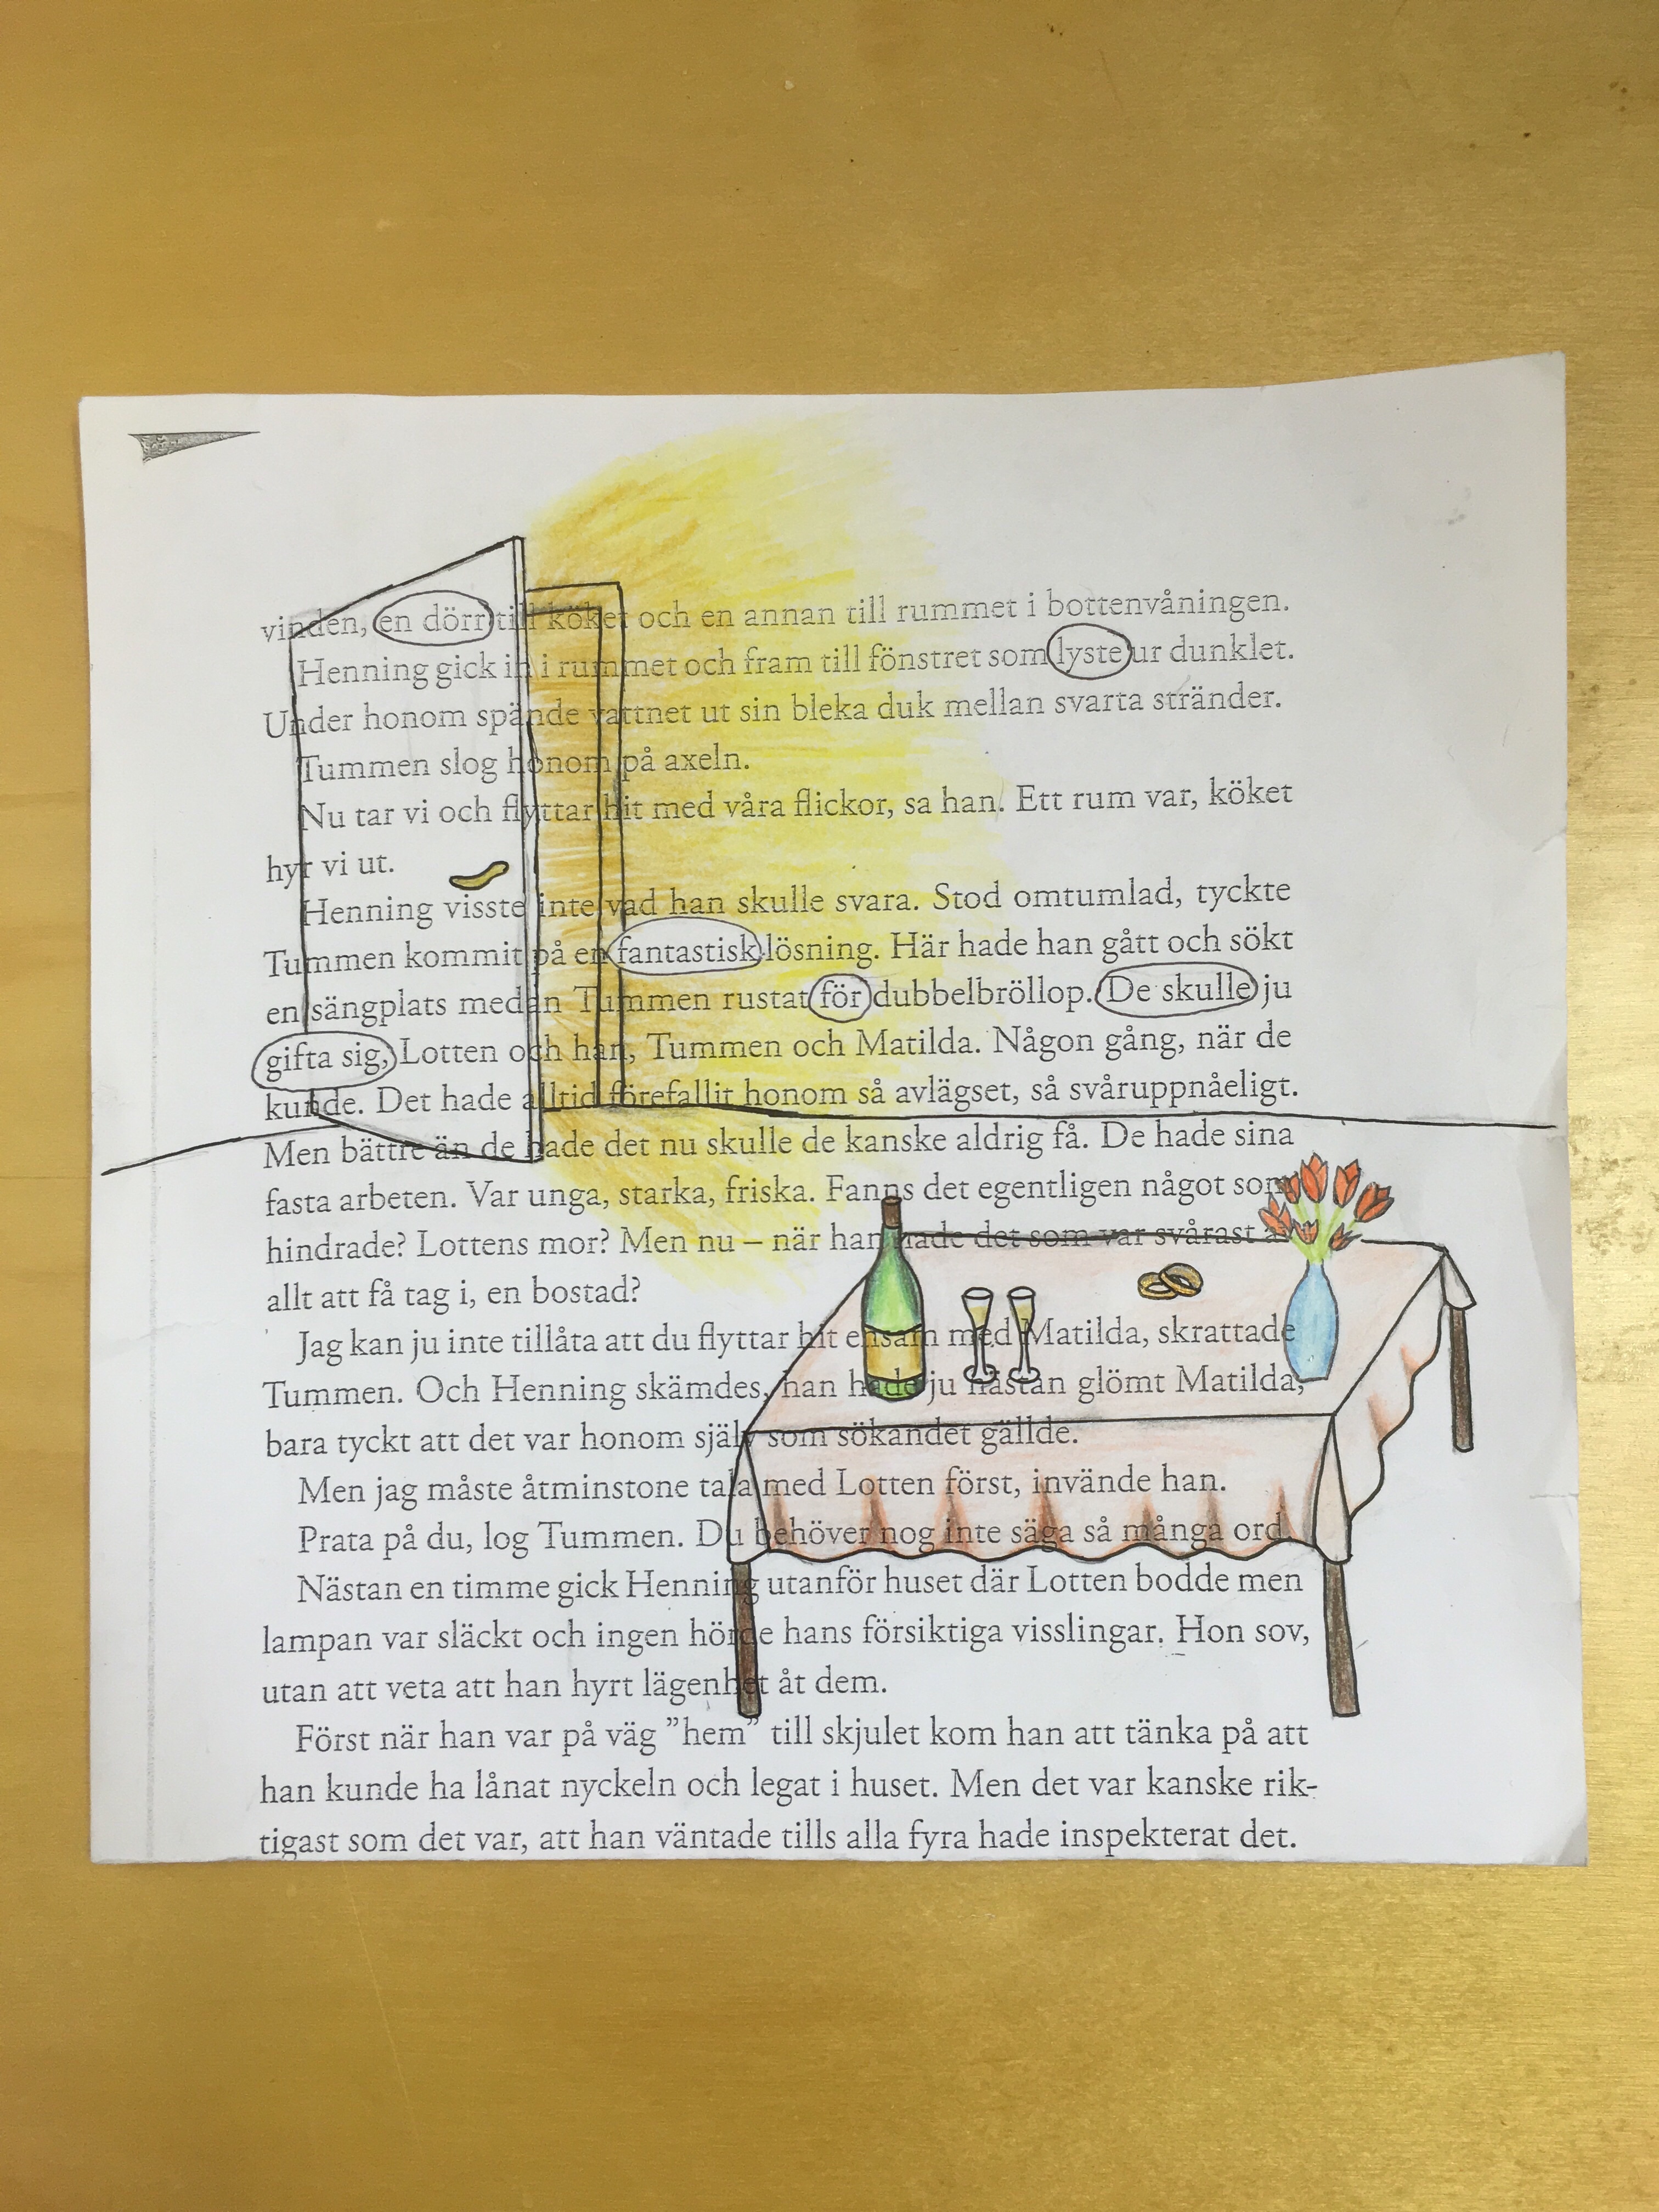 vinden, en dörr till köket och en annan till rummet i bottenvåningen.
Henning gick in i rummet och fram till fönstret som lyste ur dunklet.
Under honom spände vattnet ut sin bleka duk mellan svarta stränder.
Tummen slog honom på axeln.
Nu tar vi och flyttar hit med våra flickor, sa han. Ett rum var, köket
hyr vi ut.
Henning visste inte vad han skulle svara. Stod omtumlad, tyckte
Tummen kommit på en fantastisk lösning. Här hade han gått och sökt
en sängplats medan Tummen rustat för dubbelbröllop. De skulle ju
gifta sig, Lotten och han, Tummen och Matilda. Någon gång, när de
kunde. Det hade alltid förefallit honom så avlägset, så svåruppnåeligt.
Men bättre än de hade det nu skulle de kanske aldrig få. De hade sina
fasta arbeten. Var unga, starka, friska. Fanns det egentligen något som
hindrade? Lottens mor? Men nu – när han hade det som var svårast av
allt att få tag i, en bostad?
Jag kan ju inte tillåta att du flyttar hit ensam med Matilda, skrattade
Tummen. Och Henning skämdes, han hade ju nästan glömt Matilda,
bara tyckt att det var honom själv som sökandet gällde.
Men jag måste åtminstone tala med Lotten först, invände han.
Prata på du, log Tummen. Du behöver nog inte säga så många ord.
Nästan en timme gick Henning utanför huset där Lotten bodde men
lampan var släckt och ingen hörde hans försiktiga visslingar. Hon sov,
utan att veta att han hyrt lägenhet åt dem.
Först när han var på väg ”hem” till skjulet kom han att tänka på att
han kunde ha lånat nyckeln och legat i huset. Men det var kanske rik-
tigast som det var, att han väntade tills alla fyra hade inspekterat det.